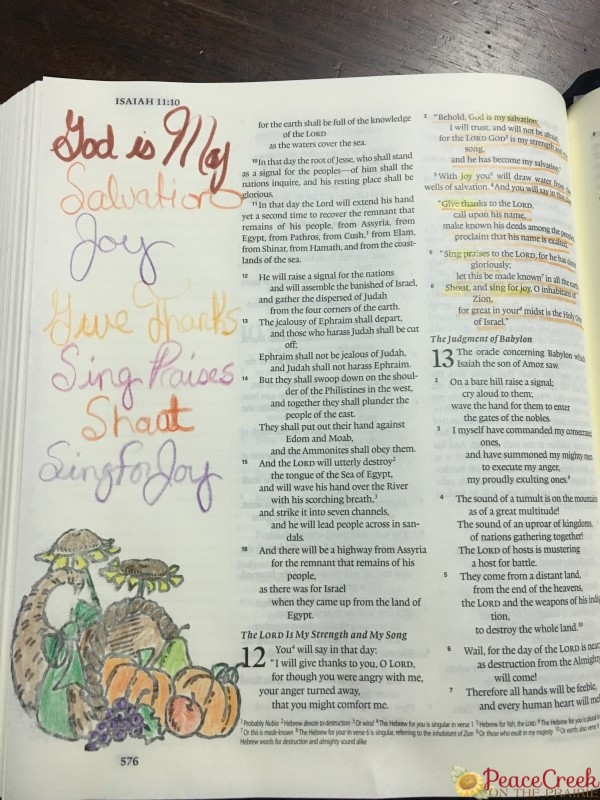 ISAIAH 11:10
God is My
Salvation
Joy
Give Thanks
Sing Praises
Shout
Sing For Joy
for the earth shall be full of the knowledge
of the LORD
as the waters cover the sea.
10 In that day the root of Jesse, who shall stand
as a signal for the peoples—of him shall the
nations inquire, and his resting place shall be
glorious.
11 In that day the Lord will extend his hand
yet a second time to recover the remnant that
remains of his people, from Assyria, from
Egypt, from Pathros, from Cush,1 from Elam,
from Shinar, from Hamath, and from the coast-
lands of the sea.
12 He will raise a signal for the nations
and will assemble the banished of Israel,
and gather the dispersed of Judah
from the four corners of the earth.
13 The jealousy of Ephraim shall depart,
and those who harass Judah shall be cut
off;
Ephraim shall not be jealous of Judah,
and Judah shall not harass Ephraim.
14 But they shall swoop down on the shoul-
der of the Philistines in the west,
and together they shall plunder the
people of the east.
They shall put out their hand against
Edom and Moab,
and the Ammonites shall obey them.
15 And the LORD will utterly destroy2
the tongue of the Sea of Egypt,
and will wave his hand over the River
with his scorching breath,3
and strike it into seven channels,
and he will lead people across in san-
dals.
16 And there will be a highway from Assyria
for the remnant that remains of his
people,
as there was for Israel
when they came up from the land of
Egypt.
The LORD Is My Strength and My Song
12 You4 will say in that day:
"I will give thanks to you, O LORD,
for though you were angry with me,
your anger turned away,
that you might comfort me.
2 "Behold, God is my salvation;
I will trust, and will not be afraid;
for the LORD GOD5 is my strength and my
song,
and he has become my salvation."
3 With joy you6 will draw water from the
wells of salvation. 4 And you will say in that day:
"Give thanks to the LORD,
call upon his name,
make known his deeds among the peoples,
proclaim that his name is exalted.
5 "Sing praises to the LORD, for he has done
gloriously;
let this be made known7 in all the earth.
6 Shout, and sing for joy, O inhabitant of
Zion,
for great in your8 midst is the Holy One
of Israel."
The Judgment of Babylon
13 The oracle concerning Babylon which
Isaiah the son of Amoz saw.
2 On a bare hill raise a signal;
cry aloud to them;
wave the hand for them to enter
the gates of the nobles.
3 I myself have commanded my consecrated
ones,
and have summoned my mighty men
to execute my anger,
my proudly exulting ones.9
4 The sound of a tumult is on the mountains
as of a great multitude!
The sound of an uproar of kingdoms,
of nations gathering together!
The LORD of hosts is mustering
a host for battle.
5 They come from a distant land,
from the end of the heavens,
the LORD and the weapons of his indig
tion,
to destroy the whole land.10
6 Wail, for the day of the LORD is near;
as destruction from the Almighty
will come!
7 Therefore all hands will be feeble,
and every human heart will
1 Probably Nubia 2 Hebrew devote to destruction 3 Or wind 4 The Hebrew for you is singular in verse 1 5 Hebrew for Yah, the LORD 6 The Hebrew for you is plural in
7 Or this is made known 8 The Hebrew for your in verse 6 is singular, referring to the inhabitant of Zion 9 Or those who exult in my majesty 10 Or earth; also
Hebrew words for destruction and almighty sound alike
576
PeaceCreek
ON THE PRAIRIE